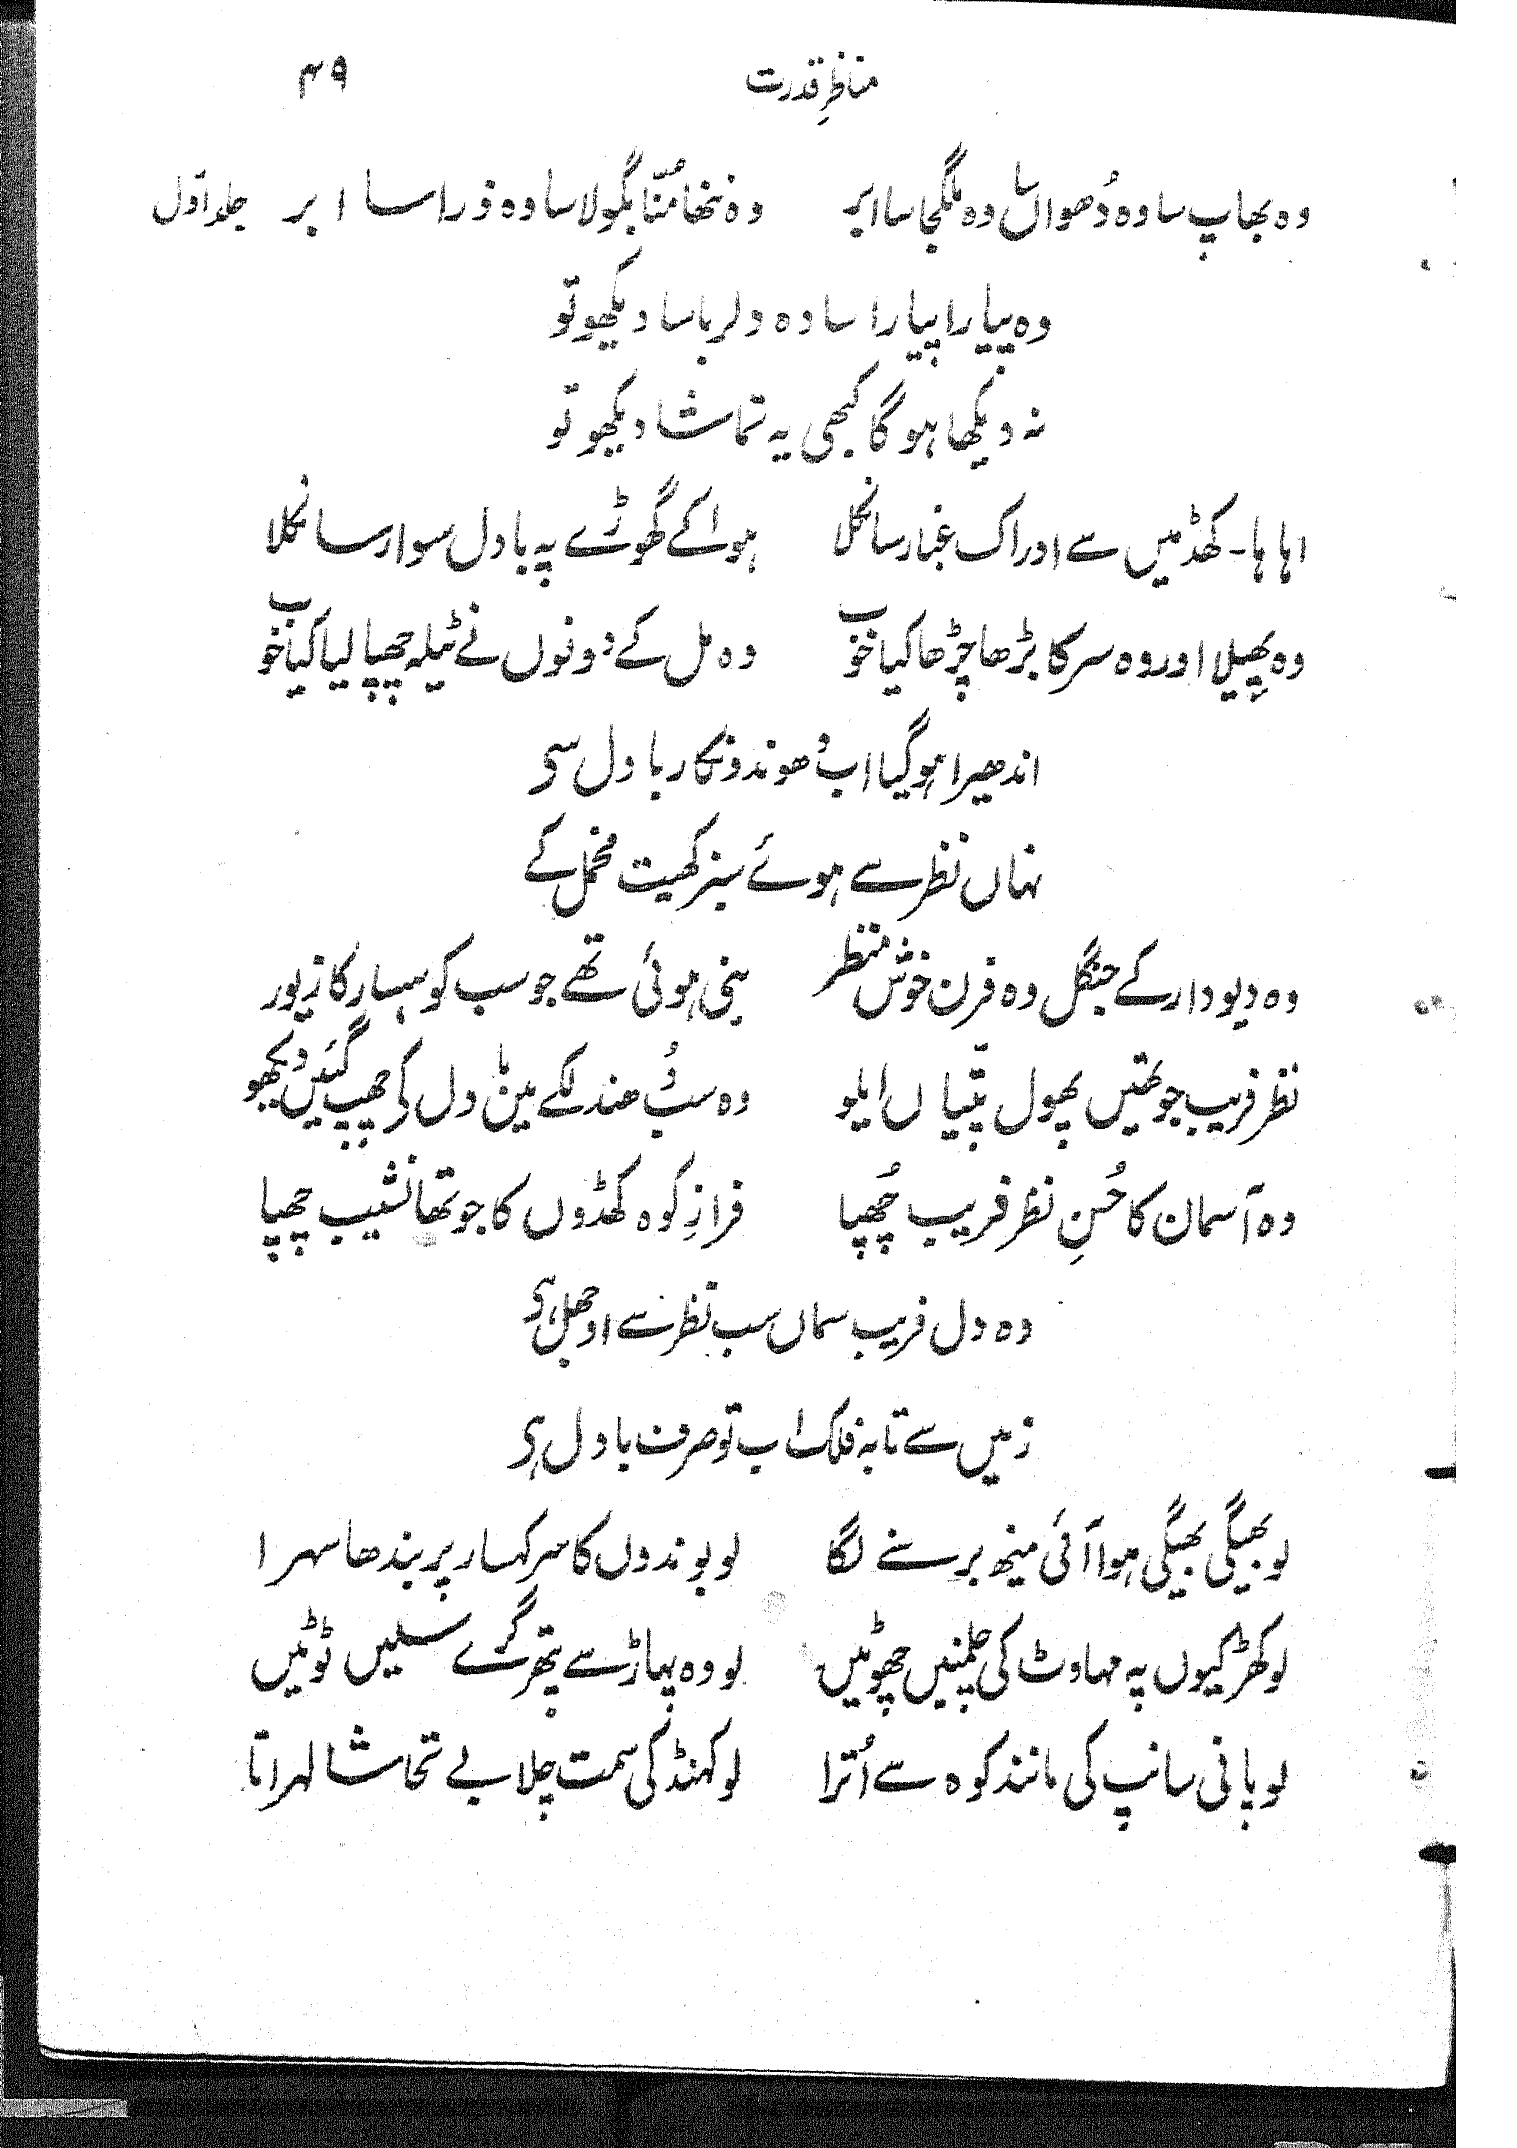 مناظرِ قدرت ۴۹
وہ بھاپ سا وہ دُھواں سا وہ ملگجا سا ابر وہ ننھا مُنّا بگولا سا وہ ذرا سا ابر جلد اوّل
وہ پیارا پیارا سا وہ دلربا سا دیکھو تو
نہ دیکھا ہوگا کبھی یہ تماشا دیکھو تو
اہاہا۔ کھڈ میں سے اور اک غبار سا نکلا ہوا کے گھوڑے پہ بادل سوار سا نکلا
وہ پھیلا اور وہ سرکا بڑھا چڑھا کیا خوب وہ مل کے دونوں نے ٹیلہ چھپا لیا کیا خوب
اندھیرا ہو گیا اب دُھوندونکار بادل سی
نہاں نظر سے ہوئے سبز کھیت مخمل کے
وہ دیودار کے جنگل وہ فرن خوش منظر بنی ہوئی تھے جو سب کوہسار کا زیور
نظر فریب جو تھیں پھول پتّیاں ایلو وہ سب دُھندلکے میں بادل کی چھپ گئیں دیکھو
وہ آسمان کا حُسنِ نظر فریب چُھپا فرازِ کوہ کھڈوں کا جو تھا نشیب چھپا
وہ دل فریب سماں سب نظر سے اوجھل ہی
زمیں سے تا بہ فلک اب تو صرف بادل ہی
لو بھیگی بھیگی ہوا آئی مینھ برسنے لگا لو بوندوں کا سرِ کہسار پر بندھا سہرا
لو کھڑکیوں پہ مہاوٹ کی چلمنیں چھوٹیں لو وہ پہاڑ سے پتھر گرے سلیں ٹوٹیں
لو پانی سانپ کی مانند کوہ سے اُترا لو کہنڈ کی سمت چلا بے تحاشا لہراتا